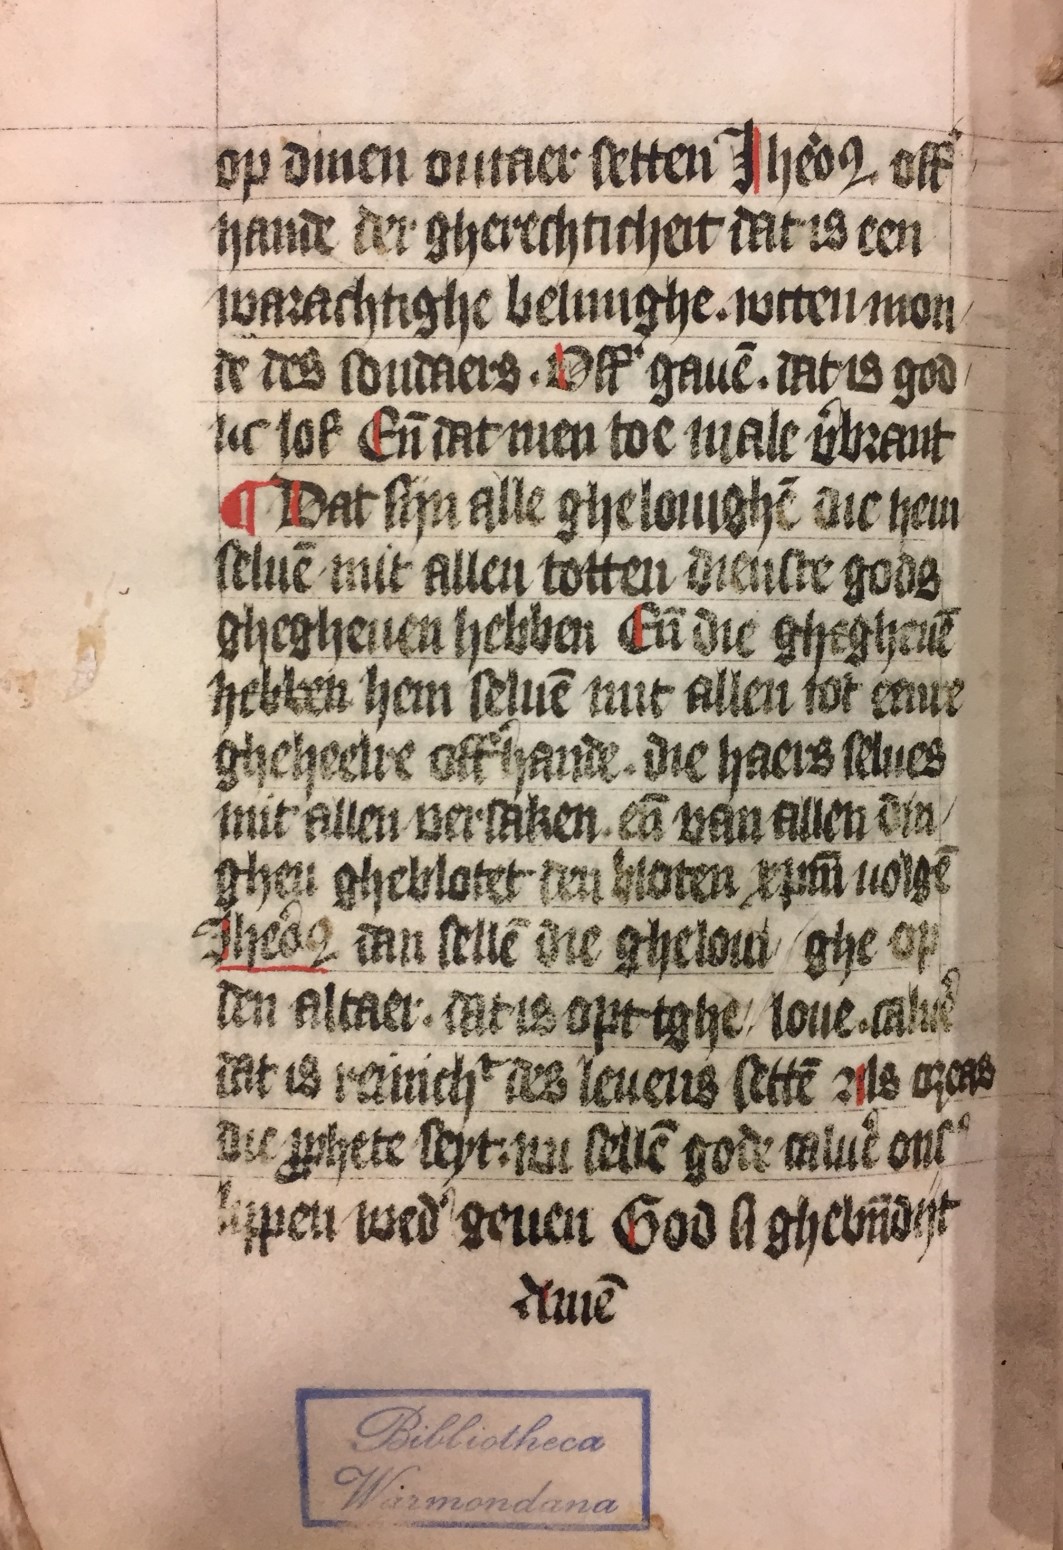 op dinen outaer setten Jheo9 off'
hande der gherechticheit dat is een
warachtighe beliinghe. wtten mon/
de des sondaers. Off' gauē. dat is god/
lic lof Eñ dat men toe male v'brant
¶ Dat sijn alle ghelouighē die hem
seluē mit allen totten dienste gods
ghegheuen hebben Eñ die ghegheuē
hebben hem seluē mit allen tot eenre
gheheelre off'hande. die haers selues
mit allen versaken. eñ van allen din/
ghen gheblotet den bloten xpm̄ uolgē
Jheo9 dan sellē die gheloui/ghe op
den altaer. dat is opt tghe/loue. caluē'
dat is reinich't des leuens settē Als ozeas
die ꝓphete seyt. nu sellē gode caluē' ons'
lippen wed' geuen God si ghebn̄dijt
Amē
Bibliotheca
Warmondana